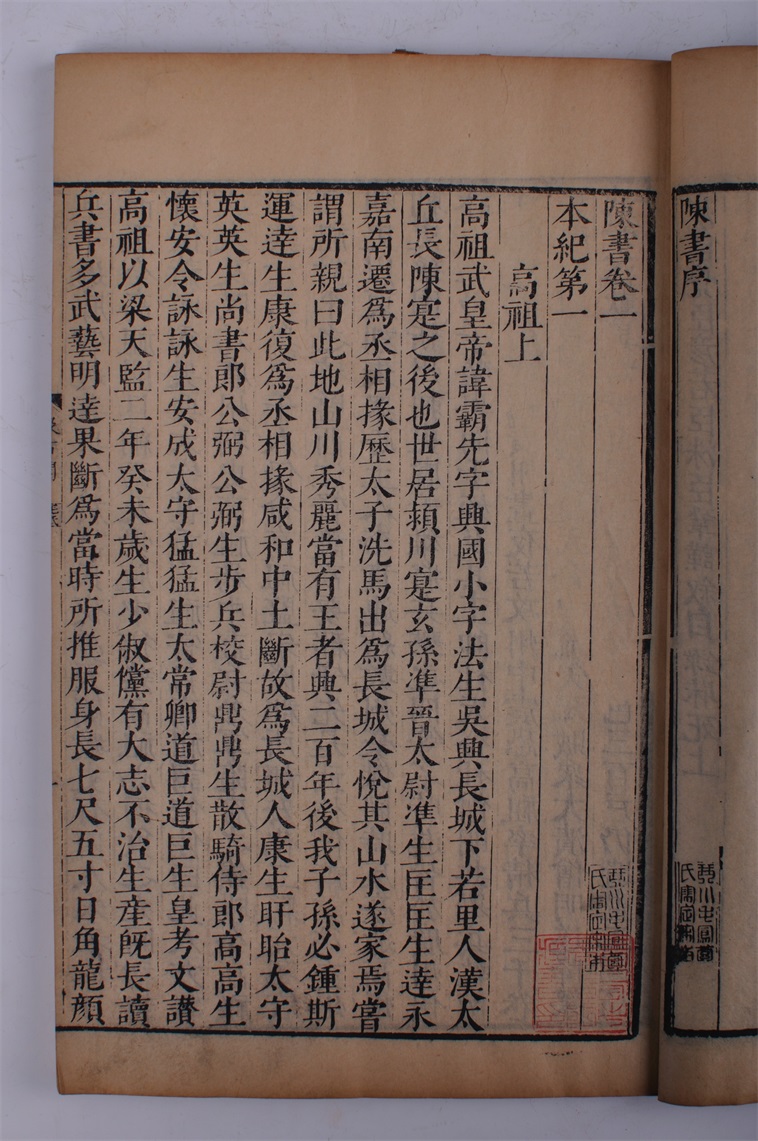 陳書序
陳書卷一
本紀第一
高祖上
高祖武皇帝諱霸先字興國小字法生吳興長城下若里人漢太
丘長陳寔之後也世居潁川寔玄孫準晉太尉準生匡匡生達永
嘉南遷爲丞相掾歷太子洗馬出爲長城令悅其山水遂家焉嘗
謂所親曰此地山川秀麗當有王者興二百年後我子孫必鍾斯
運達生康復爲丞相掾咸和中土斷故爲長城人康生盱眙太守
英英生尚書郎公弼公弼生步兵校尉鼎鼎生散騎侍郎高高生
懷安令詠詠生安成太守猛猛生太常卿道巨道巨生皇考文讃
高祖以梁天監二年癸未歲生少俶儻有大志不治生産旣長讀
兵書多武藝明達果斷爲當時所推服身長七尺五寸日角龍顏